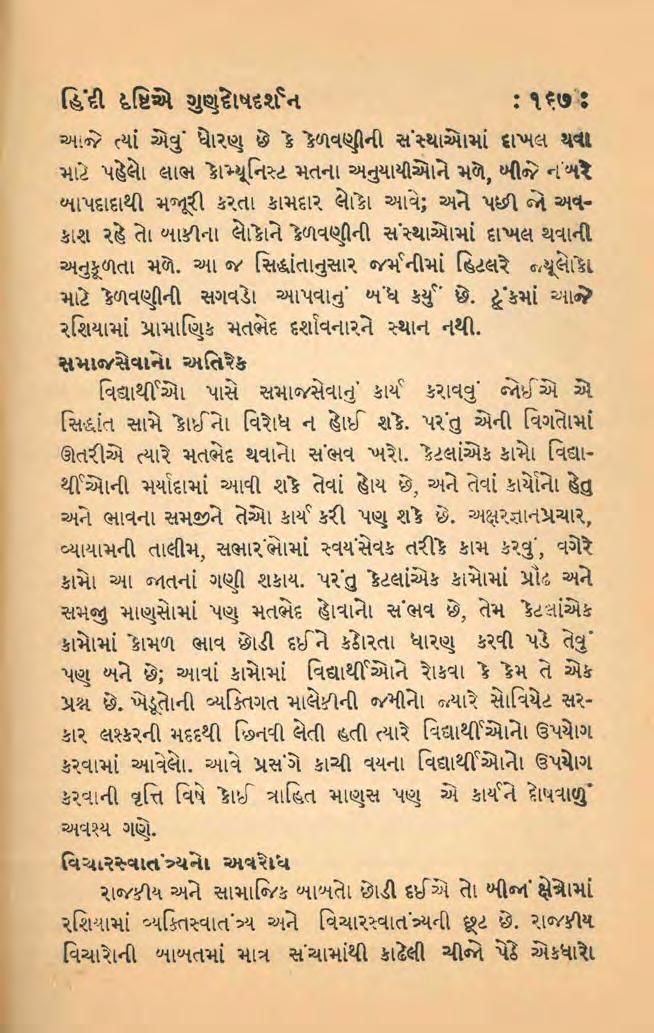 હિંદી દૃષ્ટિએ ગુણદોષદર્શન : ૧૬૭ :
આજે ત્યાં એવું ધોરણ છે કે કેળવણીની સંસ્થાઓમાં દાખલ થવા
માટે પહેલો લાભ કોમ્યૂનિસ્ટ મતના અનુયાયીઓને મળે, બીજે નંબરે
બાપદાદાથી મજૂરી કરતા કામદાર લોકો આવે; અને પછી જો અવ-
કાશ રહે તો બાકીના લોકોને કેળવણીની સંસ્થાઓમાં દાખલ થવાની
અનુકૂળતા મળે. આ જ સિદ્ધાંતાનુસાર જર્મનીમાં હિટલરે જ્યૂલોકો
માટે કેળવણીની સગવડો આપવાનું બંધ કર્યું છે. ટૂંકમાં આજે
રશિયામાં પ્રામાણિક મતભેદ દર્શાવનારને સ્થાન નથી.
સમાજસેવાનો અતિરેક
વિદ્યાર્થીઓ પાસે સમાજસેવાનું કાર્ય કરાવવું જોઈએ એ
સિદ્ધાંત સામે કોઈનો વિરોધ ન હોઈ શકે. પરંતુ એની વિગતોમાં
ઊતરીએ ત્યારે મતભેદ થવાનો સંભવ ખરો. કેટલાંએક કામો વિદ્યા-
ર્થીઓની મર્યાદામાં આવી શકે તેવાં હોય છે, અને તેવાં કાર્યોનો હેતુ
અને ભાવના સમજીને તેઓ કાર્ય કરી પણ શકે છે. અક્ષરજ્ઞાનપ્રચાર,
વ્યાયામની તાલીમ, સભારંભોમાં સ્વયંસેવક તરીકે કામ કરવું, વગેરે
કામો આ જાતનાં ગણી શકાય. પરંતુ કેટલાંએક કામોમાં પ્રૌઢ અને
સમજુ માણસોમાં પણ મતભેદ હોવાનો સંભવ છે, તેમ કેટલાંએક
કામોમાં કોમળ ભાવ છોડી દઈને કઠોરતા ધારણ કરવી પડે તેવું
પણ બને છે; આવાં કામોમાં વિદ્યાર્થીઓને રોકવા કે કેમ તે એક
પ્રશ્ન છે. ખેડૂતોની વ્યક્તિગત માલેકીની જમીનો જ્યારે સોવિયેટ સર-
કાર લશ્કરની મદદથી છિનવી લેતી હતી ત્યારે વિદ્યાર્થીઓનો ઉપયોગ
કરવામાં આવેલો. આવે પ્રસંગે કાચી વયના વિદ્યાર્થીઓનો ઉપયોગ
કરવાની વૃત્તિ વિષે કોઈ ત્રાહિત માણસ પણ એ કાર્યને દોષવાળું
અવશ્ય ગણે.
વિચારસ્વાતંત્ર્યનો અવરોધ
રાજકીય અને સામાજિક બાબતો છોડી દઈએ તો બીજાં ક્ષેત્રોમાં
રશિયામાં વ્યક્તિસ્વાતંત્ર્ય અને વિચારસ્વાતંત્ર્યની છૂટ છે. રાજકીય
વિચારોની બાબતમાં માત્ર સંચામાંથી કાઢેલી ચીજો પેઠે એકધારો